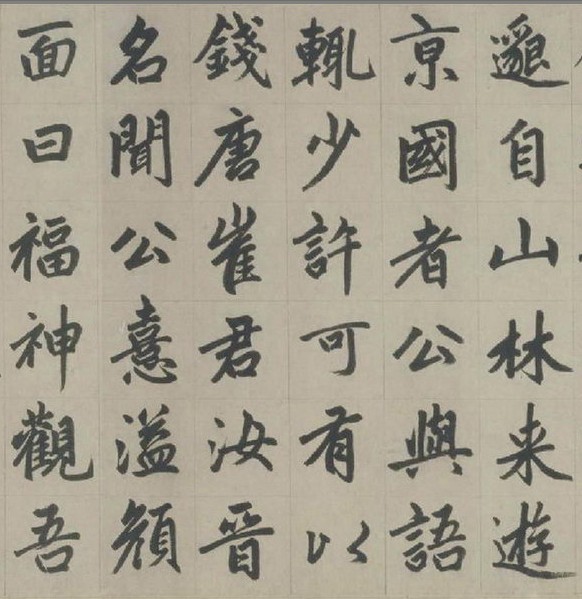 邈自山林来遊
京國者公與語
輒少許可有以
錢唐崔君汝晋
名聞公憙溢顏
面曰福神觀吾